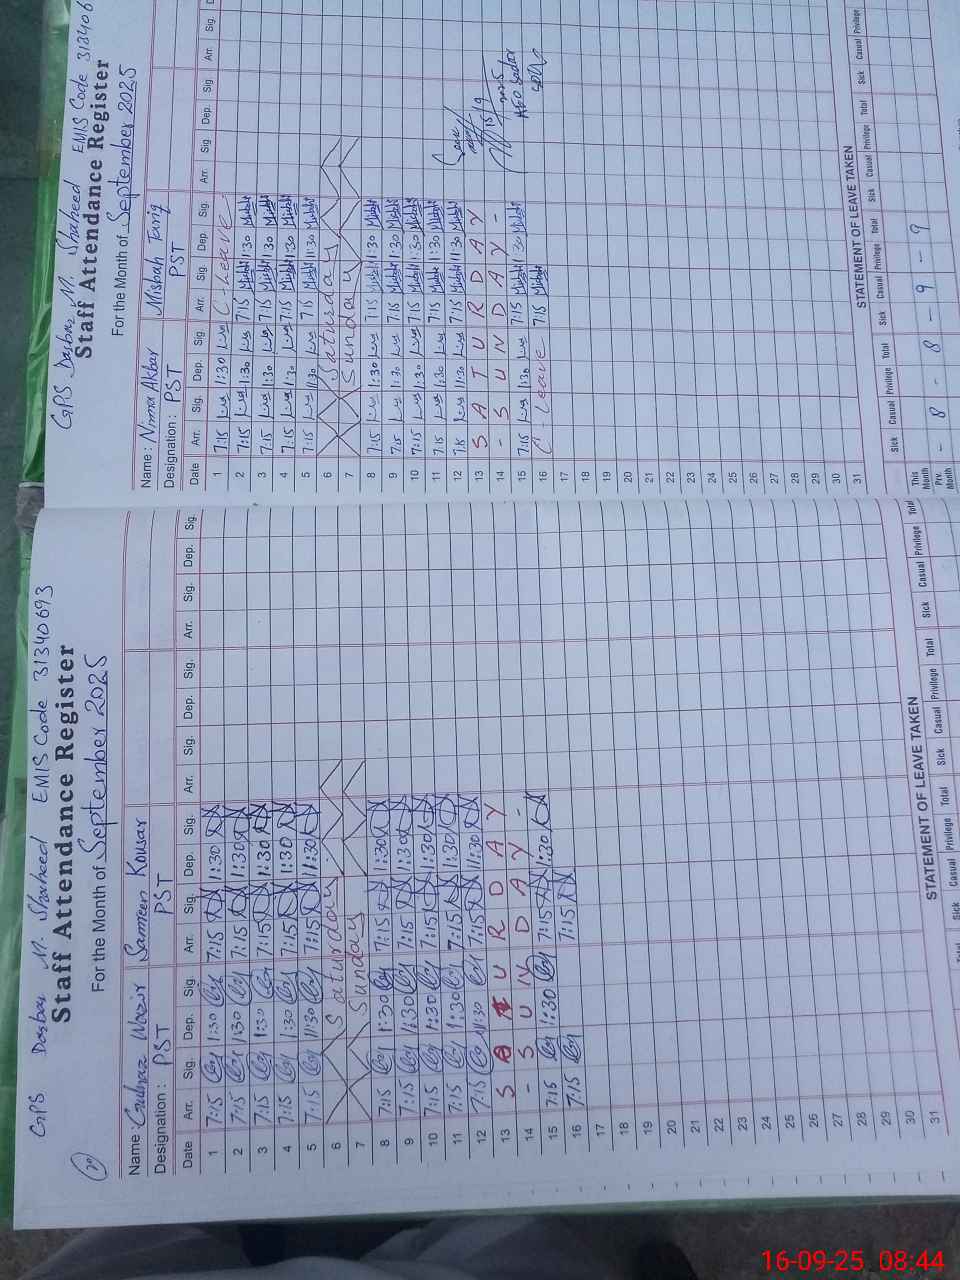 GPS Dasbar M. Shaheed EMIS Code 31340693
Staff Attendance Register
For the Month of September 2025
Name: Gulnaz Wazir Samreen Kousar
Designation: PST PST
Date Arr. Sig. Dep. Sig. Arr. Sig. Dep. Sig. Arr. Sig. Dep. Sig. Arr. Sig. Dep. Sig.
1 7:15 1:30 7:15 1:30
2 7:15 1:30 7:15 1:30
3 7:15 1:30 7:15 1:30
4 7:15 1:30 7:15 1:30
5 7:15 11:30 7:15 11:30
6 Saturday
7 Sunday
8 7:15 1:30 7:15 1:30
9 7:15 1:30 7:15 1:30
10 7:15 1:30 7:15 1:30
11 7:15 1:30 7:15 1:30
12 7:15 11:30 7:15 11:30
13 S A T U R D A Y
14 - S U N D A Y -
15 7:15 1:30 7:15 1:30
16 7:15 7:15
17
18
19
20
21
22
23
24
25
26
27
28
29
30
31
STATEMENT OF LEAVE TAKEN
Total Sick Casual Privilege Total Sick Casual Privilege Total Sick Casual Privilege Total
GPS Dasbar M. Shaheed EMIS Code 313406
Staff Attendance Register
For the Month of September 2025
Name: Nimra Akbar Misbah Tariq
Designation: PST PST
Date Arr. Sig. Dep. Sig Arr. Sig Dep. Sig. Arr. Sig Dep. Sig. Arr. Sig. D
1 7:15 1:30 C. Leave
2 7:15 1:30 7:15 1:30
3 7:15 1:30 7:15 1:30
4 7:15 1:30 7:15 1:30
5 7:15 11:30 7:15 11:30
6 Saturday
7 Sunday
8 7:15 1:30 7:15 1:30
9 7:15 1:30 7:15 1:30
10 7:15 1:30 7:15 1:30
11 7:15 1:30 7:15 1:30
12 7:15 11:30 7:15 11:30
13 S A T U R D A Y
14 - S U N D A Y -
15 7:15 1:30 7:15 1:30
16 C. Leave 7:15
17
18
19
20
21
22
23
24
25
26
27
28
29
30
31
15/9
2025
AEO Saddar
STATEMENT OF LEAVE TAKEN
Sick Casual Privilege Total Sick Casual Privilege Total Sick Casual Privilege Total Sick Casual Privilege
This Month - 8 - 8 - 9 - 9
Prv. Month
16-09-25 08:44